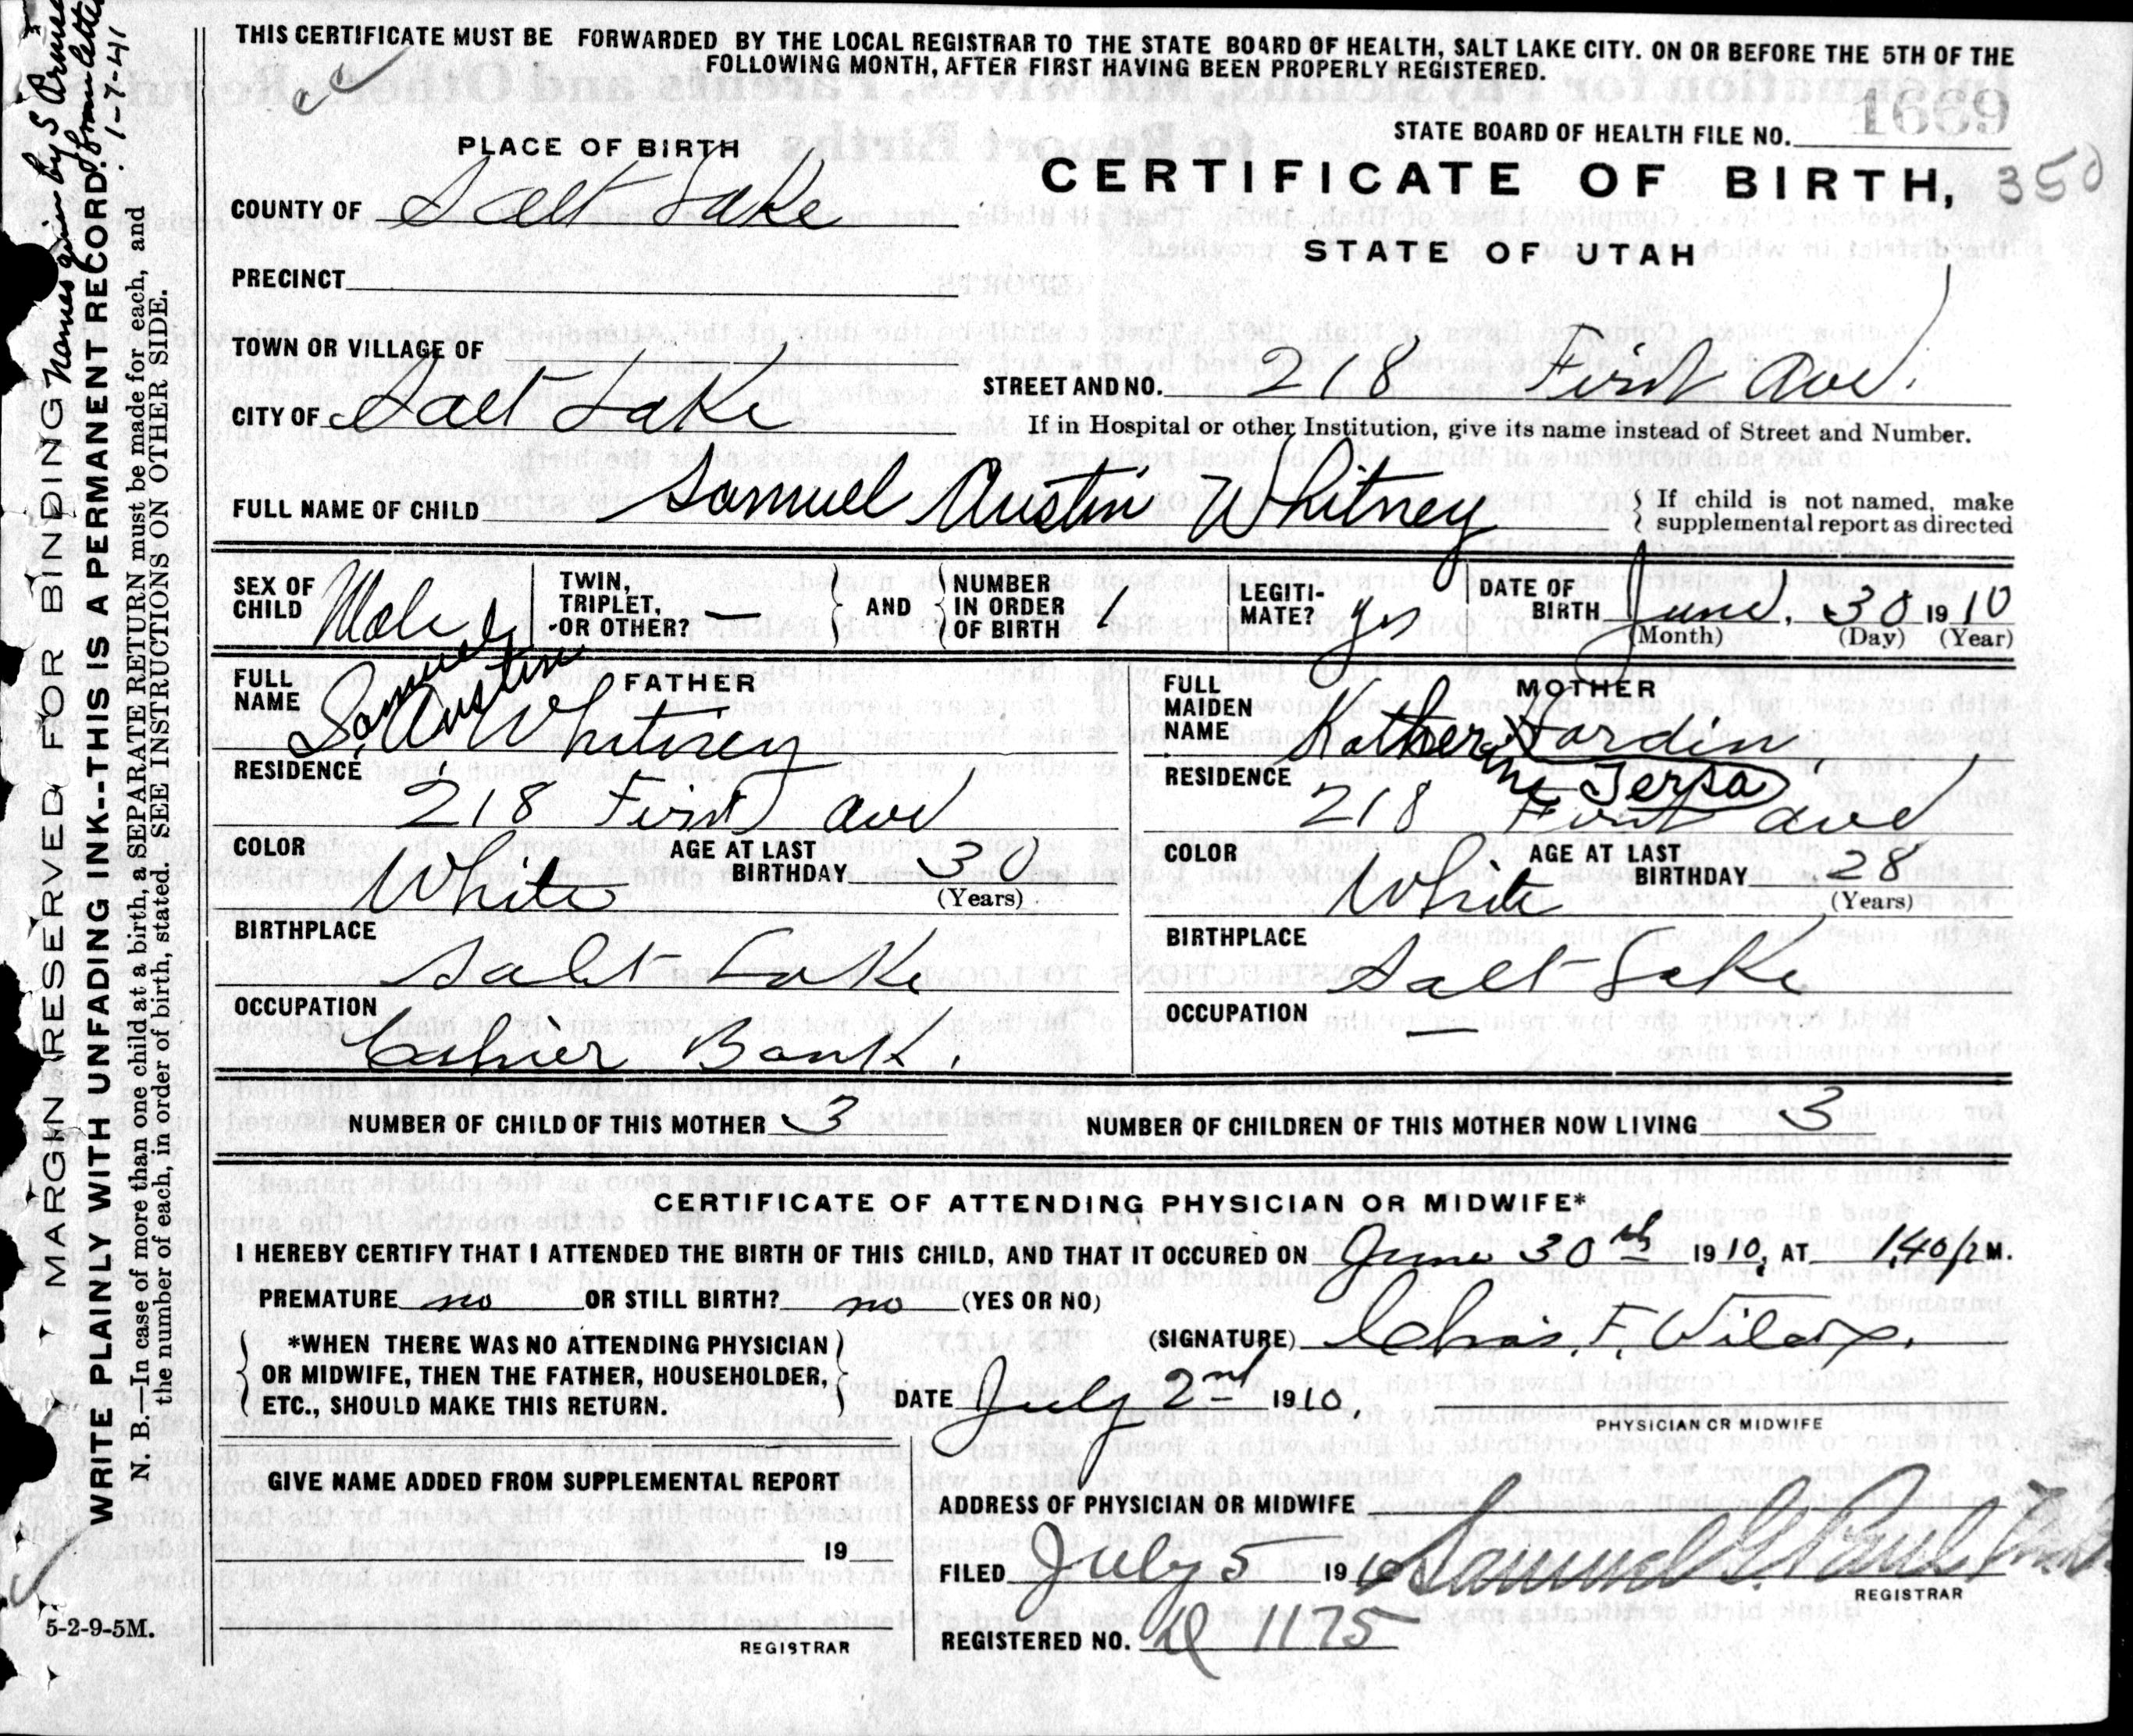 THIS CERTIFICATE MUST BE FORWARDED BY THE LOCAL REGISTRAR TO THE STATE BOARD OF HEALTH, SALT LAKE CITY. ON OR BEFORE THE 5TH OF THE
FOLLOWING MONTH, AFTER FIRST HAVING BEEN PROPERLY REGISTERED.
STATE BOARD OF HEALTH FILE NO. 1669
PLACE OF BIRTH
CERTIFICATE OF BIRTH, 350
STATE OF UTAH
COUNTY OF Salt Lake
PRECINCT
TOWN OR VILLAGE OF
STREET AND NO. 218 First Ave.
CITY OF Salt Lake
If in Hospital or other Institution, give its name instead of Street and Number.
FULL NAME OF CHILD Samuel Austin Whitney
If child is not named, make
supplemental report as directed
SEX OF CHILD Male
TWIN, TRIPLET, -OR OTHER? —
AND NUMBER IN ORDER OF BIRTH 1
LEGITI-MATE? yes
DATE OF BIRTH June, 30 1910
(Month) (Day) (Year)
FATHER
FULL NAME S. A. Whitney
Samuel Austin
RESIDENCE 218 First Ave
COLOR White
AGE AT LAST BIRTHDAY 30
(Years)
BIRTHPLACE Salt Lake
OCCUPATION Cashier Bank.
MOTHER
FULL MAIDEN NAME
RESIDENCE 218 First Ave
COLOR White
AGE AT LAST BIRTHDAY 28
(Years)
BIRTHPLACE Salt Lake
OCCUPATION —
NUMBER OF CHILD OF THIS MOTHER 3
NUMBER OF CHILDREN OF THIS MOTHER NOW LIVING 3
CERTIFICATE OF ATTENDING PHYSICIAN OR MIDWIFE*
I HEREBY CERTIFY THAT I ATTENDED THE BIRTH OF THIS CHILD, AND THAT IT OCCURED ON June 30th 1910, AT 1.40 P M.
PREMATURE no OR STILL BIRTH? no (YES OR NO)
*WHEN THERE WAS NO ATTENDING PHYSICIAN
OR MIDWIFE, THEN THE FATHER, HOUSEHOLDER,
ETC., SHOULD MAKE THIS RETURN.
(SIGNATURE) Chas. F. Wilcox.
DATE July 2nd 1910,
PHYSICIAN OR MIDWIFE
GIVE NAME ADDED FROM SUPPLEMENTAL REPORT
19
REGISTRAR
ADDRESS OF PHYSICIAN OR MIDWIFE
FILED July 5 1910 Samuel G. Paul
REGISTRAR
REGISTERED NO. 1175
MARGIN RESERVED FOR BINDING
Names given by S
from letter
1-7-41
WRITE PLAINLY WITH UNFADING INK--THIS IS A PERMANENT RECORD.
N. B.—In case of more than one child at a birth, a SEPARATE RETURN must be made for each, and
the number of each, in order of birth, stated. SEE INSTRUCTIONS ON OTHER SIDE.
5-2-9-5M.